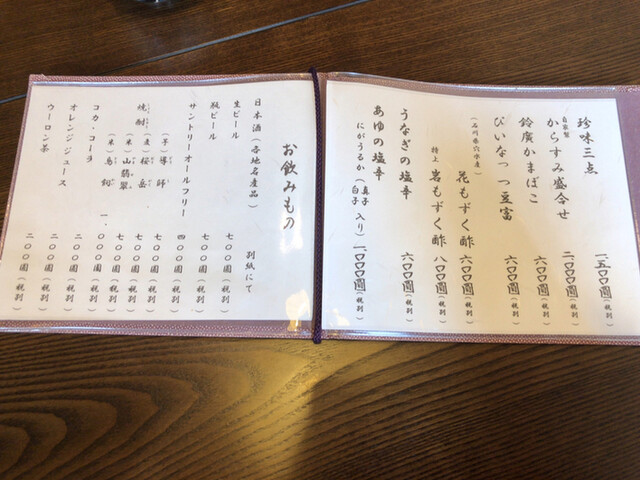 珍味三点 一、五〇〇圓（税別）
自家製 からすみ盛合せ 二、〇〇〇圓（税別）
鈴廣かまぼこ 六〇〇圓（税別）
ぴいなっつ豆富 六〇〇圓（税別）
（石川県穴水産）
花もずく酢 六〇〇圓（税別）
特上 岩もずく酢 八〇〇圓（税別）
うなぎの塩辛 六〇〇圓（税別）
あゆの塩辛
にがうるか（真子 白子 入り） 二、〇〇〇圓（税別）
お飲みもの
日本酒（各地名産品） 別紙にて
生ビール 七〇〇圓（税別）
瓶ビール 七〇〇圓（税別）
サントリーオールフリー 四〇〇圓（税別）
焼酎（芋）導師 七〇〇圓（税別）
（麦）桜岳 七〇〇圓（税別）
（米）山翡翠 七〇〇圓（税別）
（米）鳥飼 一、〇〇〇圓（税別）
コカ・コーラ 二〇〇圓（税別）
オレンジジュース 二〇〇圓（税別）
ウーロン茶 二〇〇圓（税別）